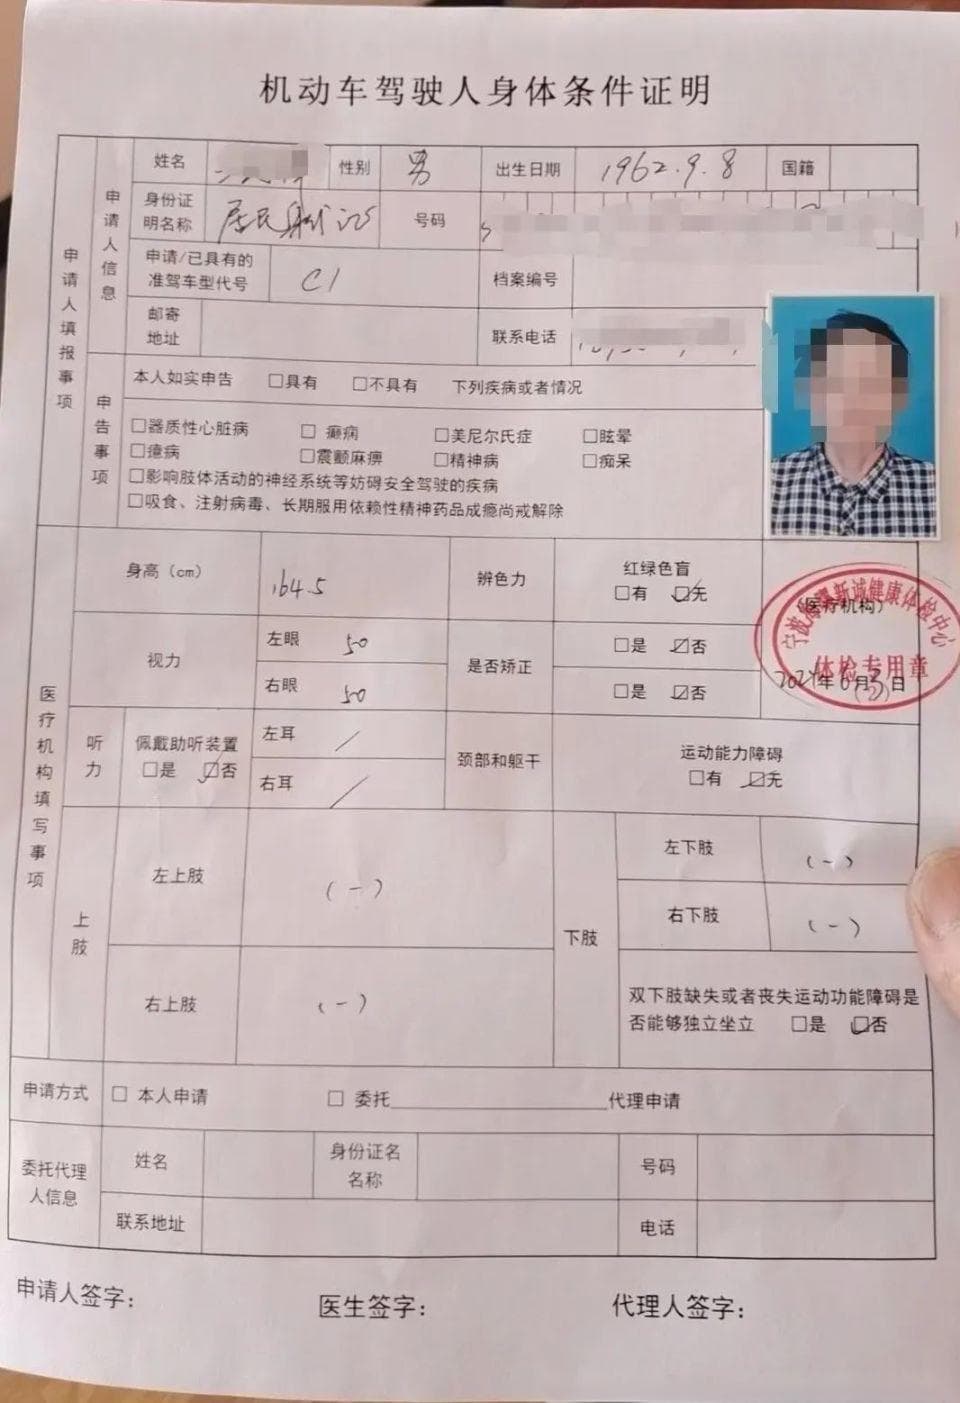 机动车驾驶人身体条件证明
申请人填报事项
申请人信息
姓名 性别 男 出生日期 1962.9.8 国籍
身份证明名称 居民身份证 号码
申请/已具有的准驾车型代号 C1 档案编号
邮寄地址 联系电话
申告事项
本人如实申告 □具有 □不具有 下列疾病或者情况
□器质性心脏病 □癫痫 □美尼尔氏症 □眩晕
□癔病 □震颤麻痹 □精神病 □痴呆
□影响肢体活动的神经系统等妨碍安全驾驶的疾病
□吸食、注射病毒、长期服用依赖性精神药品成瘾尚戒解除
医疗机构填写事项
身高（cm） 164.5 辨色力 红绿色盲
□有 ☑无
视力 左眼 50 是否矫正 □是 ☑否
右眼 50 □是 ☑否
（医疗机构）
新诚健康体检中心
体检专用章
年 月 日
听力 佩戴助听装置 □是 ☑否
左耳 /
右耳 /
颈部和躯干 运动能力障碍
□有 ☑无
上肢 左上肢 （-）
右上肢 （-）
下肢 左下肢 （-）
右下肢 （-）
双下肢缺失或者丧失运动功能障碍是
否能够独立坐立 □是 ☑否
申请方式 □ 本人申请 □ 委托 代理申请
委托代理人信息 姓名 身份证名名称 号码
联系地址 电话
申请人签字： 医生签字： 代理人签字：